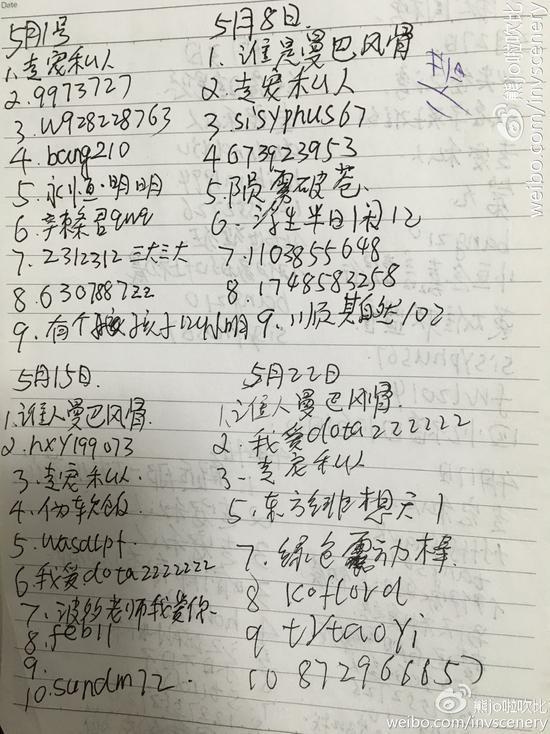 Date
5月1号
1.专宠私人
2.9973727
3.w928228763
4.bang210
5.永恒·明明
6.辛辣君qwq
7.2312312三大三大
8.630788722
9.有个孩子叫小明
5月8日
1.谁是曼巴风骨
2.专宠私人
3.sisyphus67
4 673923953
5.陨雾破苍
6.浮生半日闲12
7.1103855648
8.1748583258
9.顺其自然102
5月15日
1.谁人曼巴风骨
2.hxy199073
3.专宠私人
4.伪软饭
5.wasdlpf
6.我爱dota2222222
7.波多老师我爱你
8.feb11
9.
10.sundm72
5月22日
1.谁人曼巴风骨
2.我爱dota222222
3.专宠私人
5.东方绯想天1
7.绿色震动棒
8 koflord
9 trtaoyi
10 872966857
熊jo啦吹比
weibo.com/invscenery
熊jo啦吹比
weibo.com/invscenery